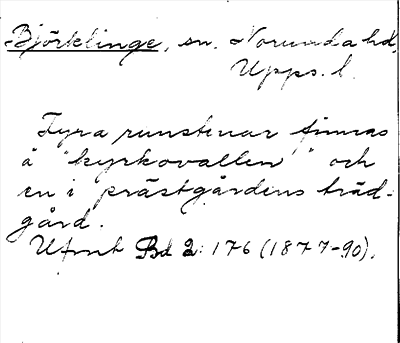 Björklinge, sn, Norunda hd,
Upps. l.
Fyra runstenar finnas
å "kyrkovallen" och
en i prästgårdens träd-
gård.
Ufmt Bd 2: 176 (1877-90).